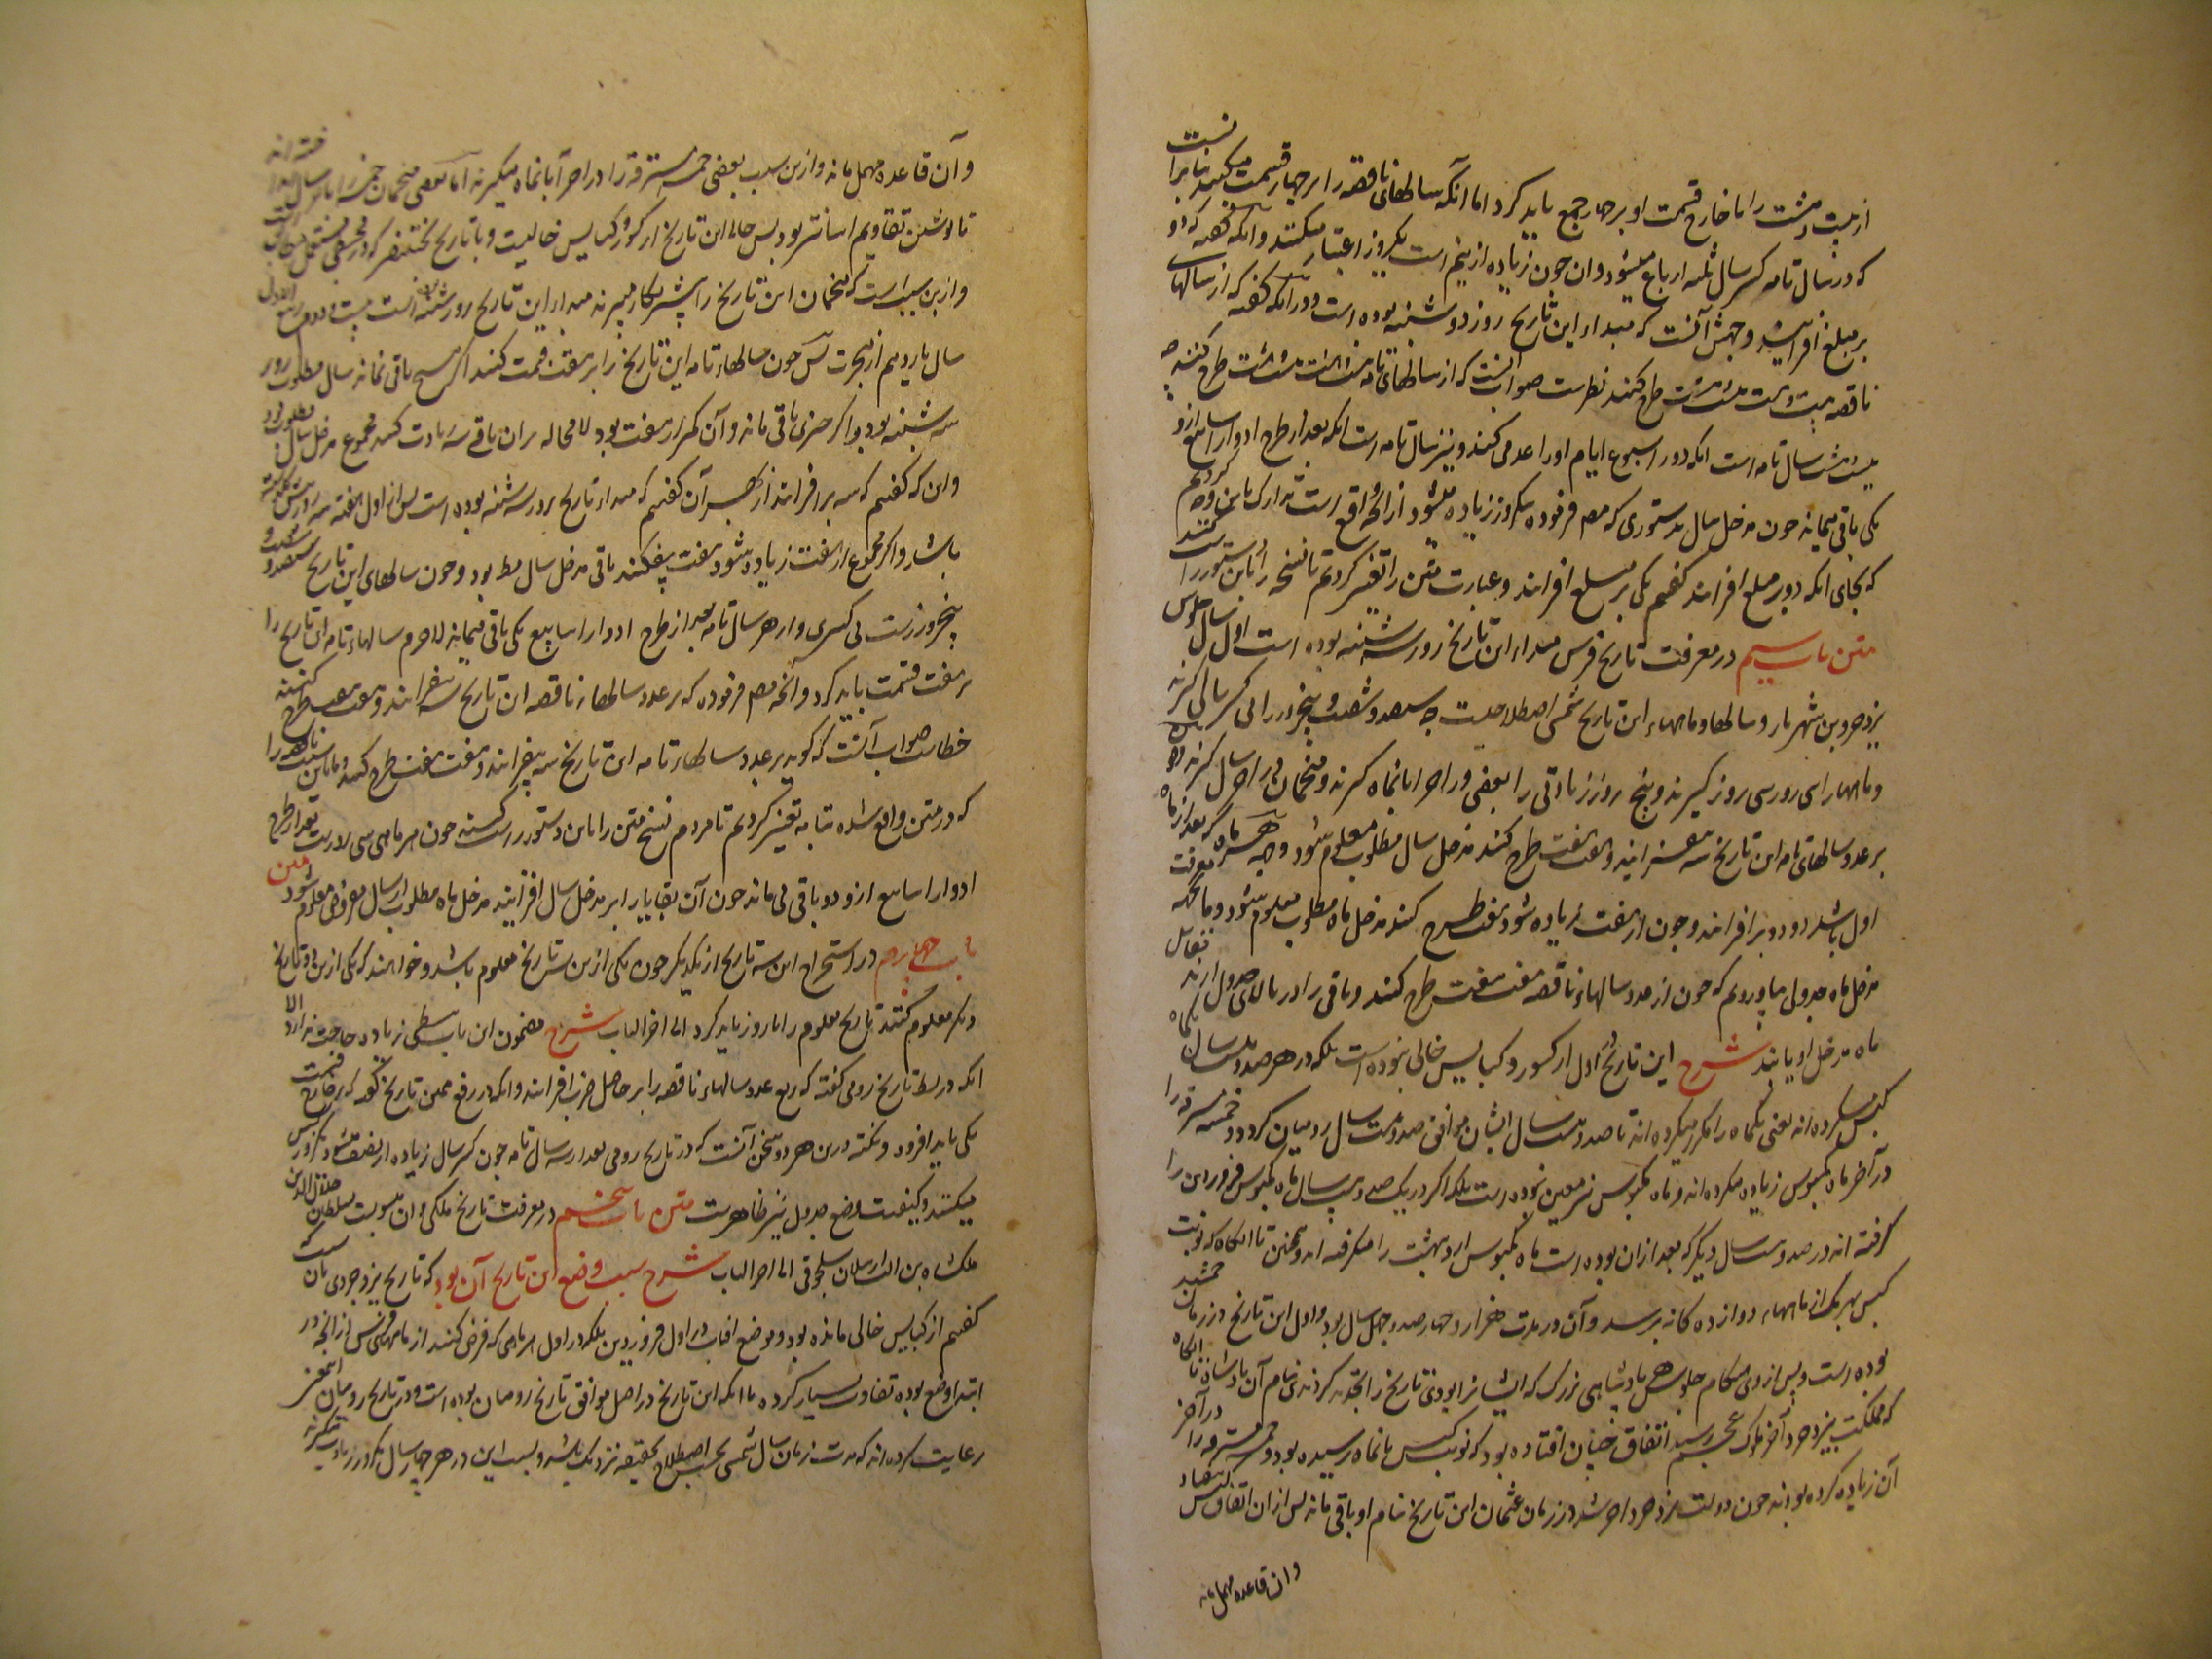 از بیست و هشت را با خارج قسمت او بر چهار جمع باید کرد اما آنکه سالهای ناقصه را بر چهار قسمت میکنند بنا بر آنست
که در سال تامه کسر سال ثلثه ارباع میشود و ان چون زیاده از نیم است یکروز اعتبار میکنند و آنکه گفته که دو
بر مبلغ افزایند وجهش آنست که مبداء این تاریخ روز دوشنبه بوده است و در آنکه گفته که از سالهای
ناقصه بیست و هشت بیست و هشت طرح کنند نظرست صواب آنست که از سالهای تامه بیست و هشت بیست و هشت طرح کنند چه
بیست و هشت سال تامه است که دور اسبوع ایام او را عد می کند و نیز سال تامه است که بعد از طرح ادوار اسابیع ازو
یکی باقی میماند چون مدخل سال بدستوری که مص فرموده یکروز زیاده میشود از آنچه واقع است تدارک باین وجه کردیم
که بجای آنکه دو بر مبلغ افزایند گفتیم یکی بر مبلغ افزایند و عبارت متن را تغییر کردیم تا نسخه را باین دستور راست کنند
متن باب سیم در معرفت تاریخ فرس مبداء این تاریخ روز سه شنبه بوده است اول سال جلوس
یزدجرد بن شهریار و سالها و ماههاء این تاریخ شمسی اصطلاحیست چه سیصد و شصت و پنج روز را بی کسر سالی گیرند
و ماهها را سی روز سی روز گیرند و پنج روز زیادتی را بعضی در آخر آبانماه گیرند و منجمان در آخر سال گیرند
بر عدد سالهای تامه این تاریخ سه بیفزایند و هفت هفت طرح کنند مدخل سال مطلوب معلوم شود و بهر ماه که بعد از ماه
اول باشد دو دو برافزایند و چون از هفت زیاده شود هفت طرح کنند مدخل ماه مطلوب معلوم شود و ما بجهت معرفت
مدخل ماه جدولی بیاوردیم که چون از عدد سالهاء ناقصه هفت هفت طرح کنند و باقی را در بالای جدول آرند بمقابل
ماه مدخل او یابند شرح این تاریخ در اول از کسور و کبایس خالی نبوده است بلکه در هر صد و بیست سال یکماه
کبس میکرده اند یعنی یکماه را مکرر میکرده اند تا صد و بیست سال ایشان موافق صد و بیست سال رومیان گردد و خمسه مسترقه را
در آخر ماه مکبوس زیاده میکرده اند و ماه مکبوس نیز معین نبوده است بلکه اگر در یک صد و بیست سال ماه مکبوس فروردین را
گرفته اند در صد و بیست سال دیگر که بعد از آن بوده است ماه مکبوس اردیبهشت را میگرفته اند و همچنین تا آنگاه که نوبت
کبس بهر یک از ماههاء دوازده گانه برسد و آن در مدت هزار و چهارصد و چهل سال بود و اول این تاریخ در زمان جمشید
بوده است و پس از وی هنگام جلوس هر پادشاهی بزرگ که ایشانرا بودی تاریخ را تجدید کردندی بنام آن پادشاه تا آنگاه
که مملکت بیزدجرد آخر ملوک عجم رسید اتفاق چنان افتاده بود که نوبت کبس بآبانماه رسیده بود و خمسه مسترقه را در آخر
آن زیاده کرده بودند چون دولت یزدجرد آخر شد در زمان عثمان این تاریخ بنام او باقی ماند پس از آن اتفاق کبس نیفتاد
وان قاعده مهمل ماند
و آن قاعده مهمل ماند و ازین سبب بعضی خمسه مسترقه را در آخر آبانماه میگیرند اما بعضی منجمان خمسه را بآخر سال
تا نوشتن تقاویم آسانتر بود پس حالا این تاریخ از کسور و کبایس خالیست و با تاریخ بختنصر که در مجسطی مستعمل
و ازین سبب است که منجمان این تاریخ را بیشتر بکار میبرند مبداء این تاریخ روز سه شنبه است بیست و دوم ربیع الاول
سال یازدهم از هجرت پس چون سالهاء تامه این تاریخ را بر هفت قسمت کنند اگر هیچ باقی نماند سال مطلوب روز
سه شنبه بود و اگر چیزی باقی ماند و آن کمتر از هفت بود لا محاله بر آن باقی سه زیادت کنند مجموع مدخل سال مطلوب بود
و این که گفتیم که سه برافزایند از بهر آن گفتیم که مبداء تاریخ روز سه شنبه بوده است پس از اول هفته سه روز گذشته
باشد و اگر مجموع از هفت زیاده شود هفت بیفکنند باقی مدخل سال مط بود و چون سالهای این تاریخ سیصد و شصت و
پنجروزست بی کسری و از هر سال تامه بعد از طرح ادوار اسابیع یکی باقی میماند لاجرم سالهاء تامه این تاریخ را
بر هفت قسمت باید کرد و آنچه مص فرموده که بر عدد سالهاء ناقصه این تاریخ سه بیفزایند و هفت هفت طرح کنند
خطاست صواب آنست که گوید بر عدد سالهاء تامه این تاریخ سه بیفزایند و هفت هفت طرح کنند و ما این ناقصه را
که در متن واقع شده بتامه تغییر کردیم تا مردم نسخ متن را باین دستور راست کنند چون هر ماهی سی روزست بعد از طرح
ادوار اسابیع ازو دو باقی می ماند چون آن بقایا را بر مدخل سال افزایند مدخل ماه مطلوب از سال مفروض معلوم شود متن
باب چهارم در استخراج این سه تاریخ از یکدیگر چون یکی ازین سه تاریخ معلوم باشد و خواهند که یکی ازین دو تاریخ
دیگر معلوم کنند تاریخ معلوم را با روز باید کرد الی آخر الباب شرح مضمون این باب ببسطی زیادت حاجت ندارد الا
آنکه در بسط تاریخ رومی گفته که ربع عدد سالهاء ناقصه را بر حاصل ضرب افزایند و آنکه در رفع همین تاریخ گفته که بر خارج قسمت
یکی باید افزود و نکته درین هر دو سخن آنست که در تاریخ رومی بعد از سه سال تامه چون کسر سال زیاده از نصف میشود یکروز کبس
میکنند و کیفیت وضع جدول نیز ظاهرست متن باب پنجم در معرفت تاریخ ملکی و ان منسوبست بسلطان جلال الدین
ملکشاه بن الب ارسلان سلجوقی الی آخر الباب شرح سبب وضع این تاریخ آن بود که تاریخ یزدجردی چنان ست
گفتیم از کبایس خالی مانده بود و موضع آفتاب در اول فروردین بلکه در اول هر ماهی که فرض کنند از ماههای فرس از آنچه در
ابتداء وضع بوده تفاوت بسیار کرده با آنکه این تاریخ در اصل موافق تاریخ رومیان بوده است و در تاریخ رومیان این معنی
رعایت کرده اند که مدت زمان سال شمسی بحسب اصطلاح بحقیقه نزدیک باشد و بسبب این در هر چهار سال یکروز زیادت میگیرند